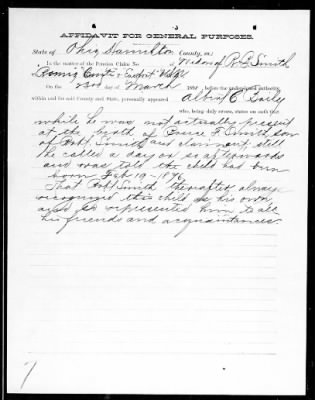 AFFIDAVIT FOR GENERAL PURPOSES.
State of Ohio, Hamilton County, ss:
In the matter of the Pension Claim No. Widow of R. Smith
On the 23rd day of March 189 before the undersigned authority
within and for said County and State, personally appeared Albert C.
who, being duly sworn, states on oath that
while he was not actually present
at the birth of F. Smith son
of Robt. Smith and claimant, still
he called a day or so afterwards
and was told the child had been
born Feb 19 - 1876
That Robt Smith thereafter always
recognized this child as his own
and so represented him to all
his friends and acquaintances.
7